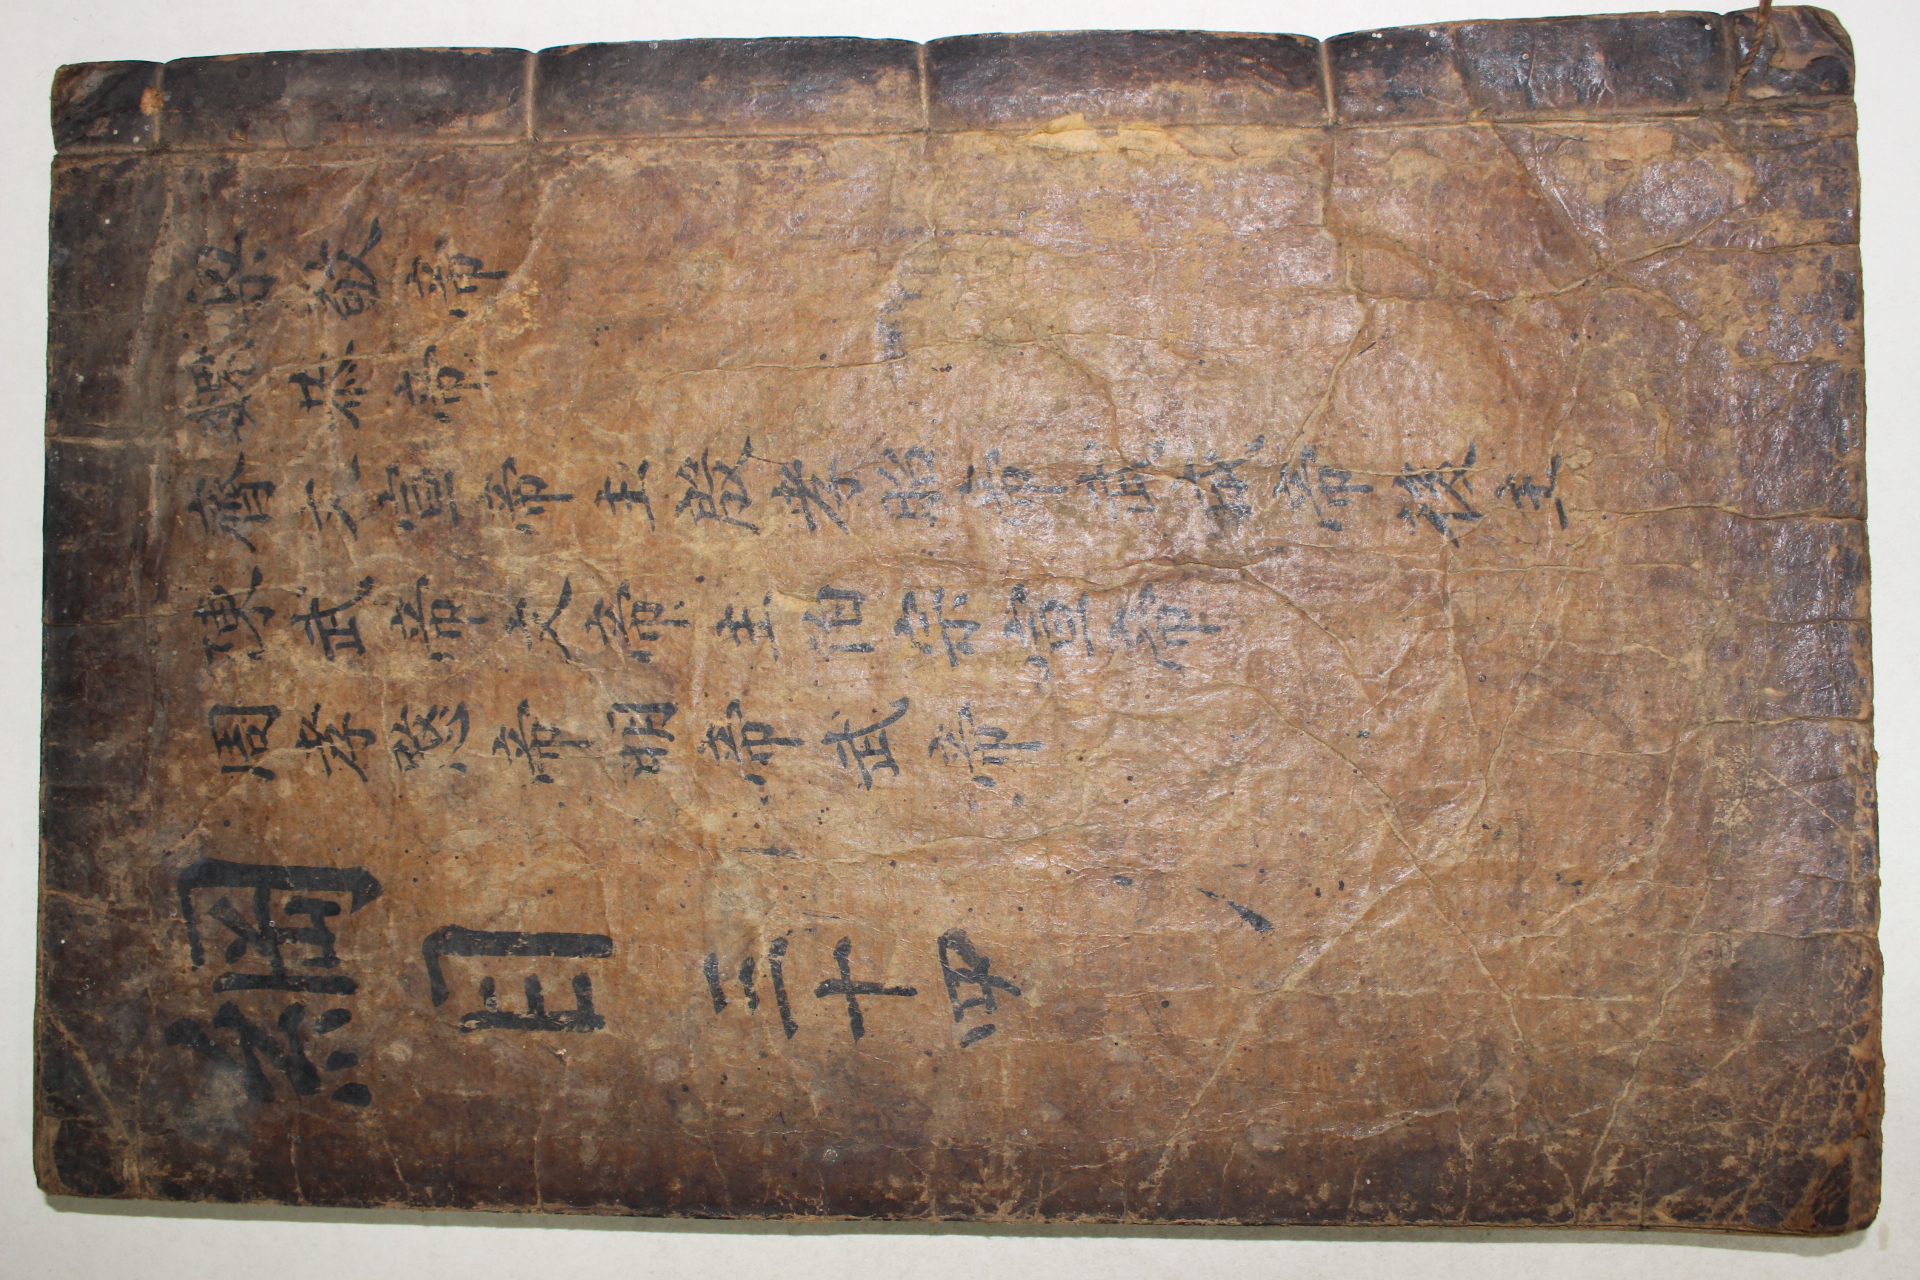 梁敬帝
魏恭帝
齊文宣帝主殷孝昭帝武成帝後主
陳武帝文帝主伯宗宣帝
周孝愍帝明帝武帝
綱目 三十四